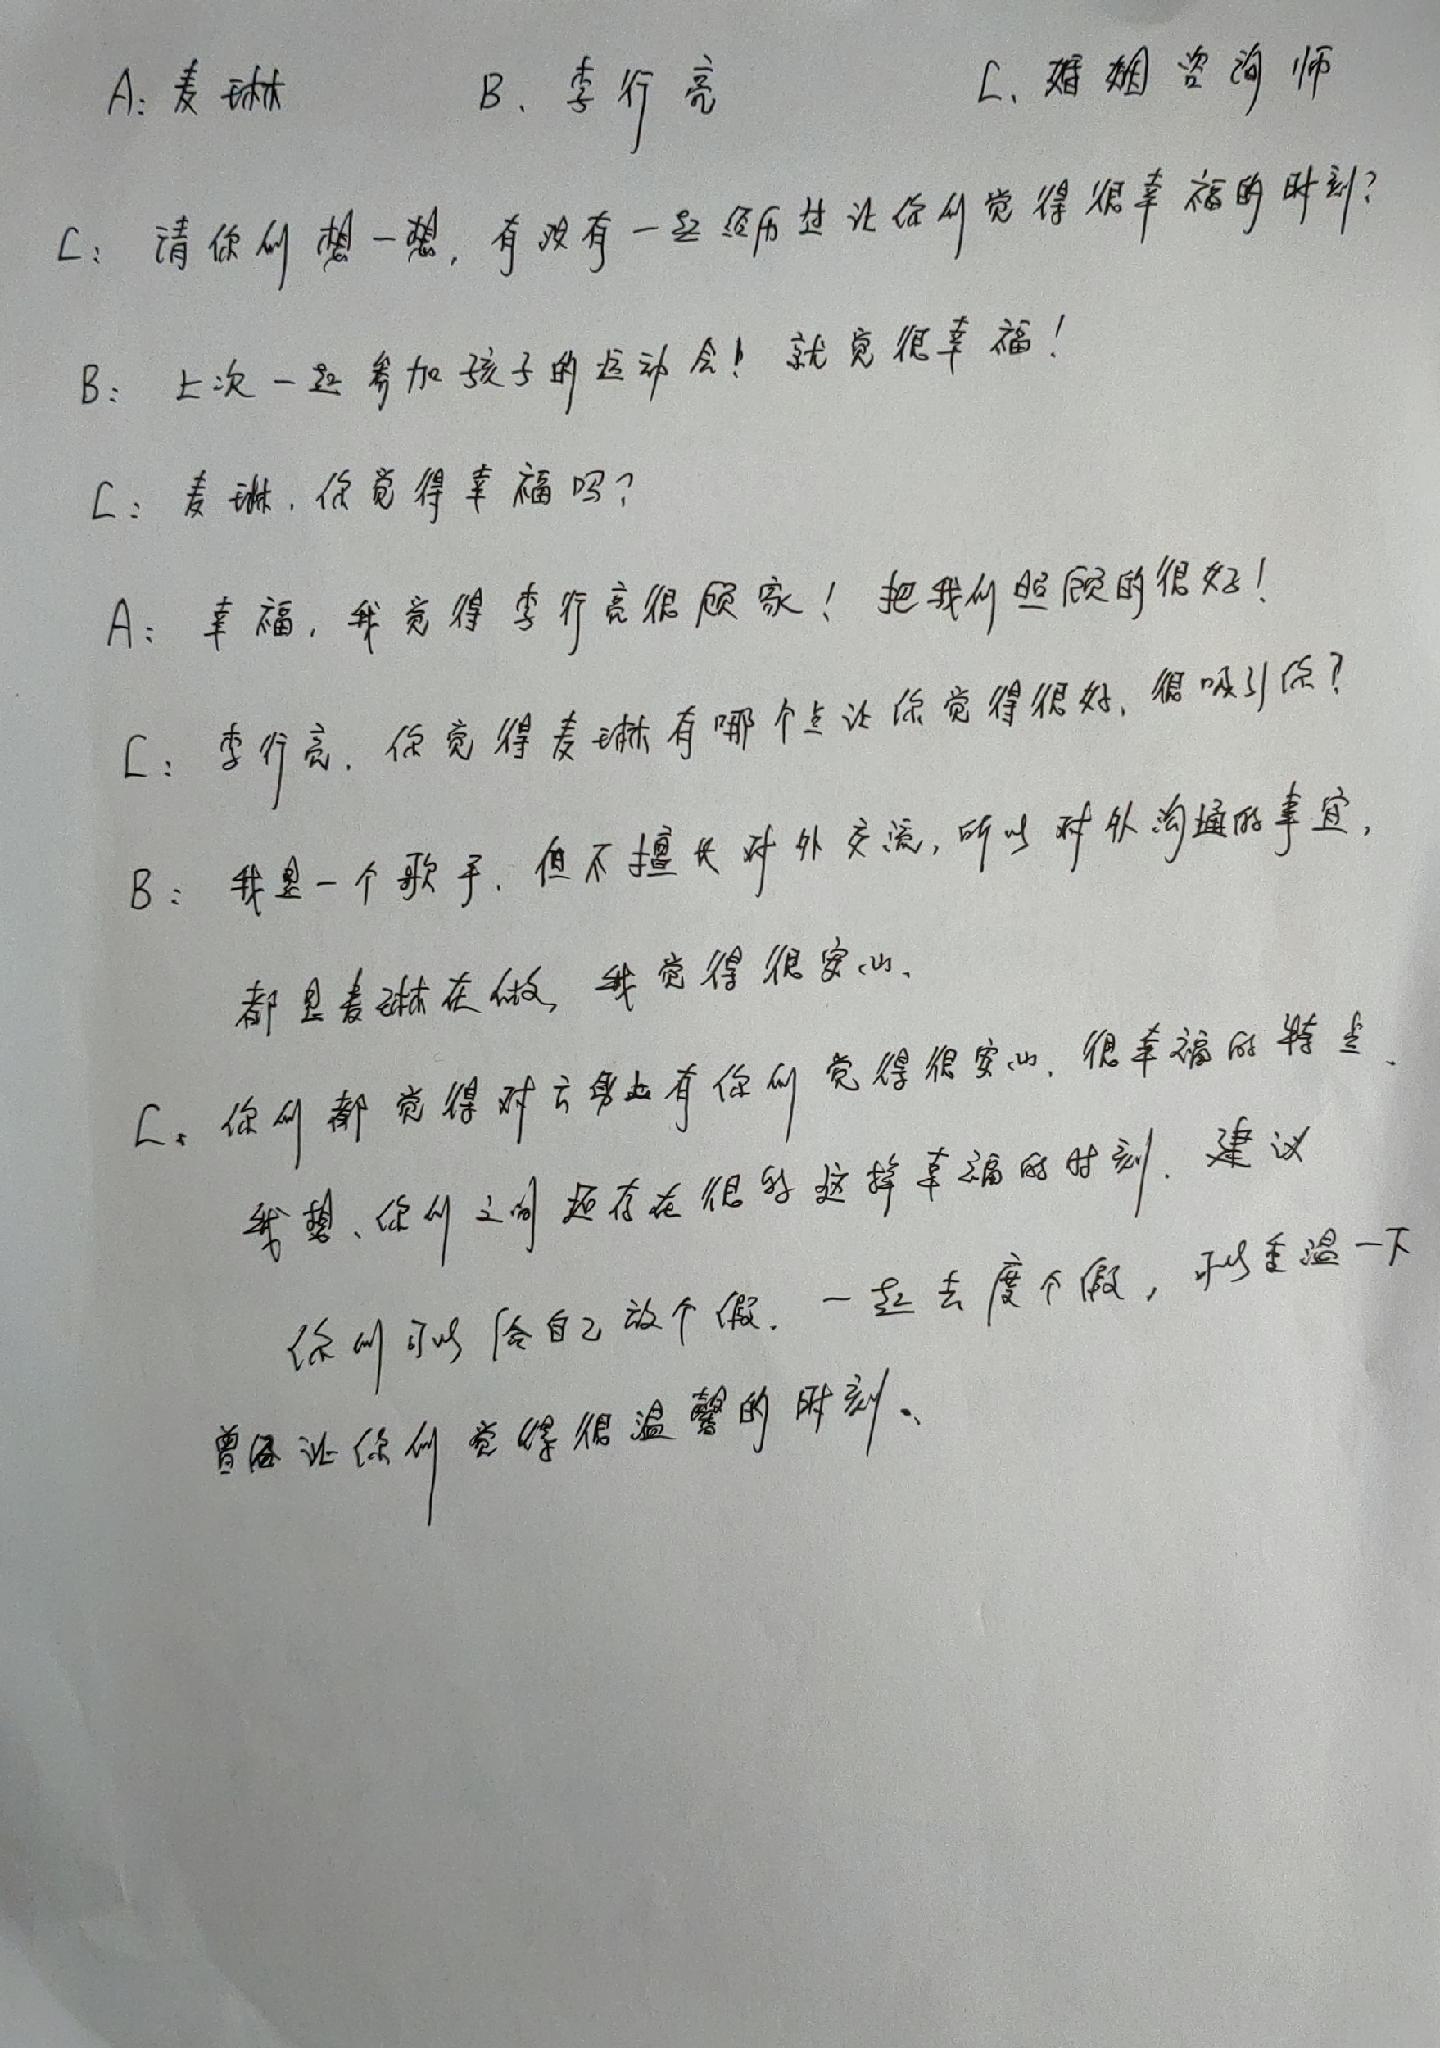 A: 麦琳 B. 李行亮 C. 婚姻咨询师
C: 请你们想一想,有没有一起经历过让你们觉得很幸福的时刻?
B: 上次一起参加孩子的运动会!就觉很幸福!
C: 麦琳,你觉得幸福吗?
A: 幸福,我觉得李行亮很顾家!把我们照顾的很好!
C: 李行亮,你觉得麦琳有哪个点让你觉得很好,很吸引你?
B: 我是一个歌手,但不擅长对外交流,所以对外沟通的事宜,
都是麦琳在做,我觉得很安心.
C. 你们都觉得对方身上有你们觉得很安心.很幸福的特点.
我想,你们之间还存在很多这样幸福的时刻.建议
你们可以给自己放个假.一起去度个假,可以重温一下
曾经让你们觉得很温馨的时刻.